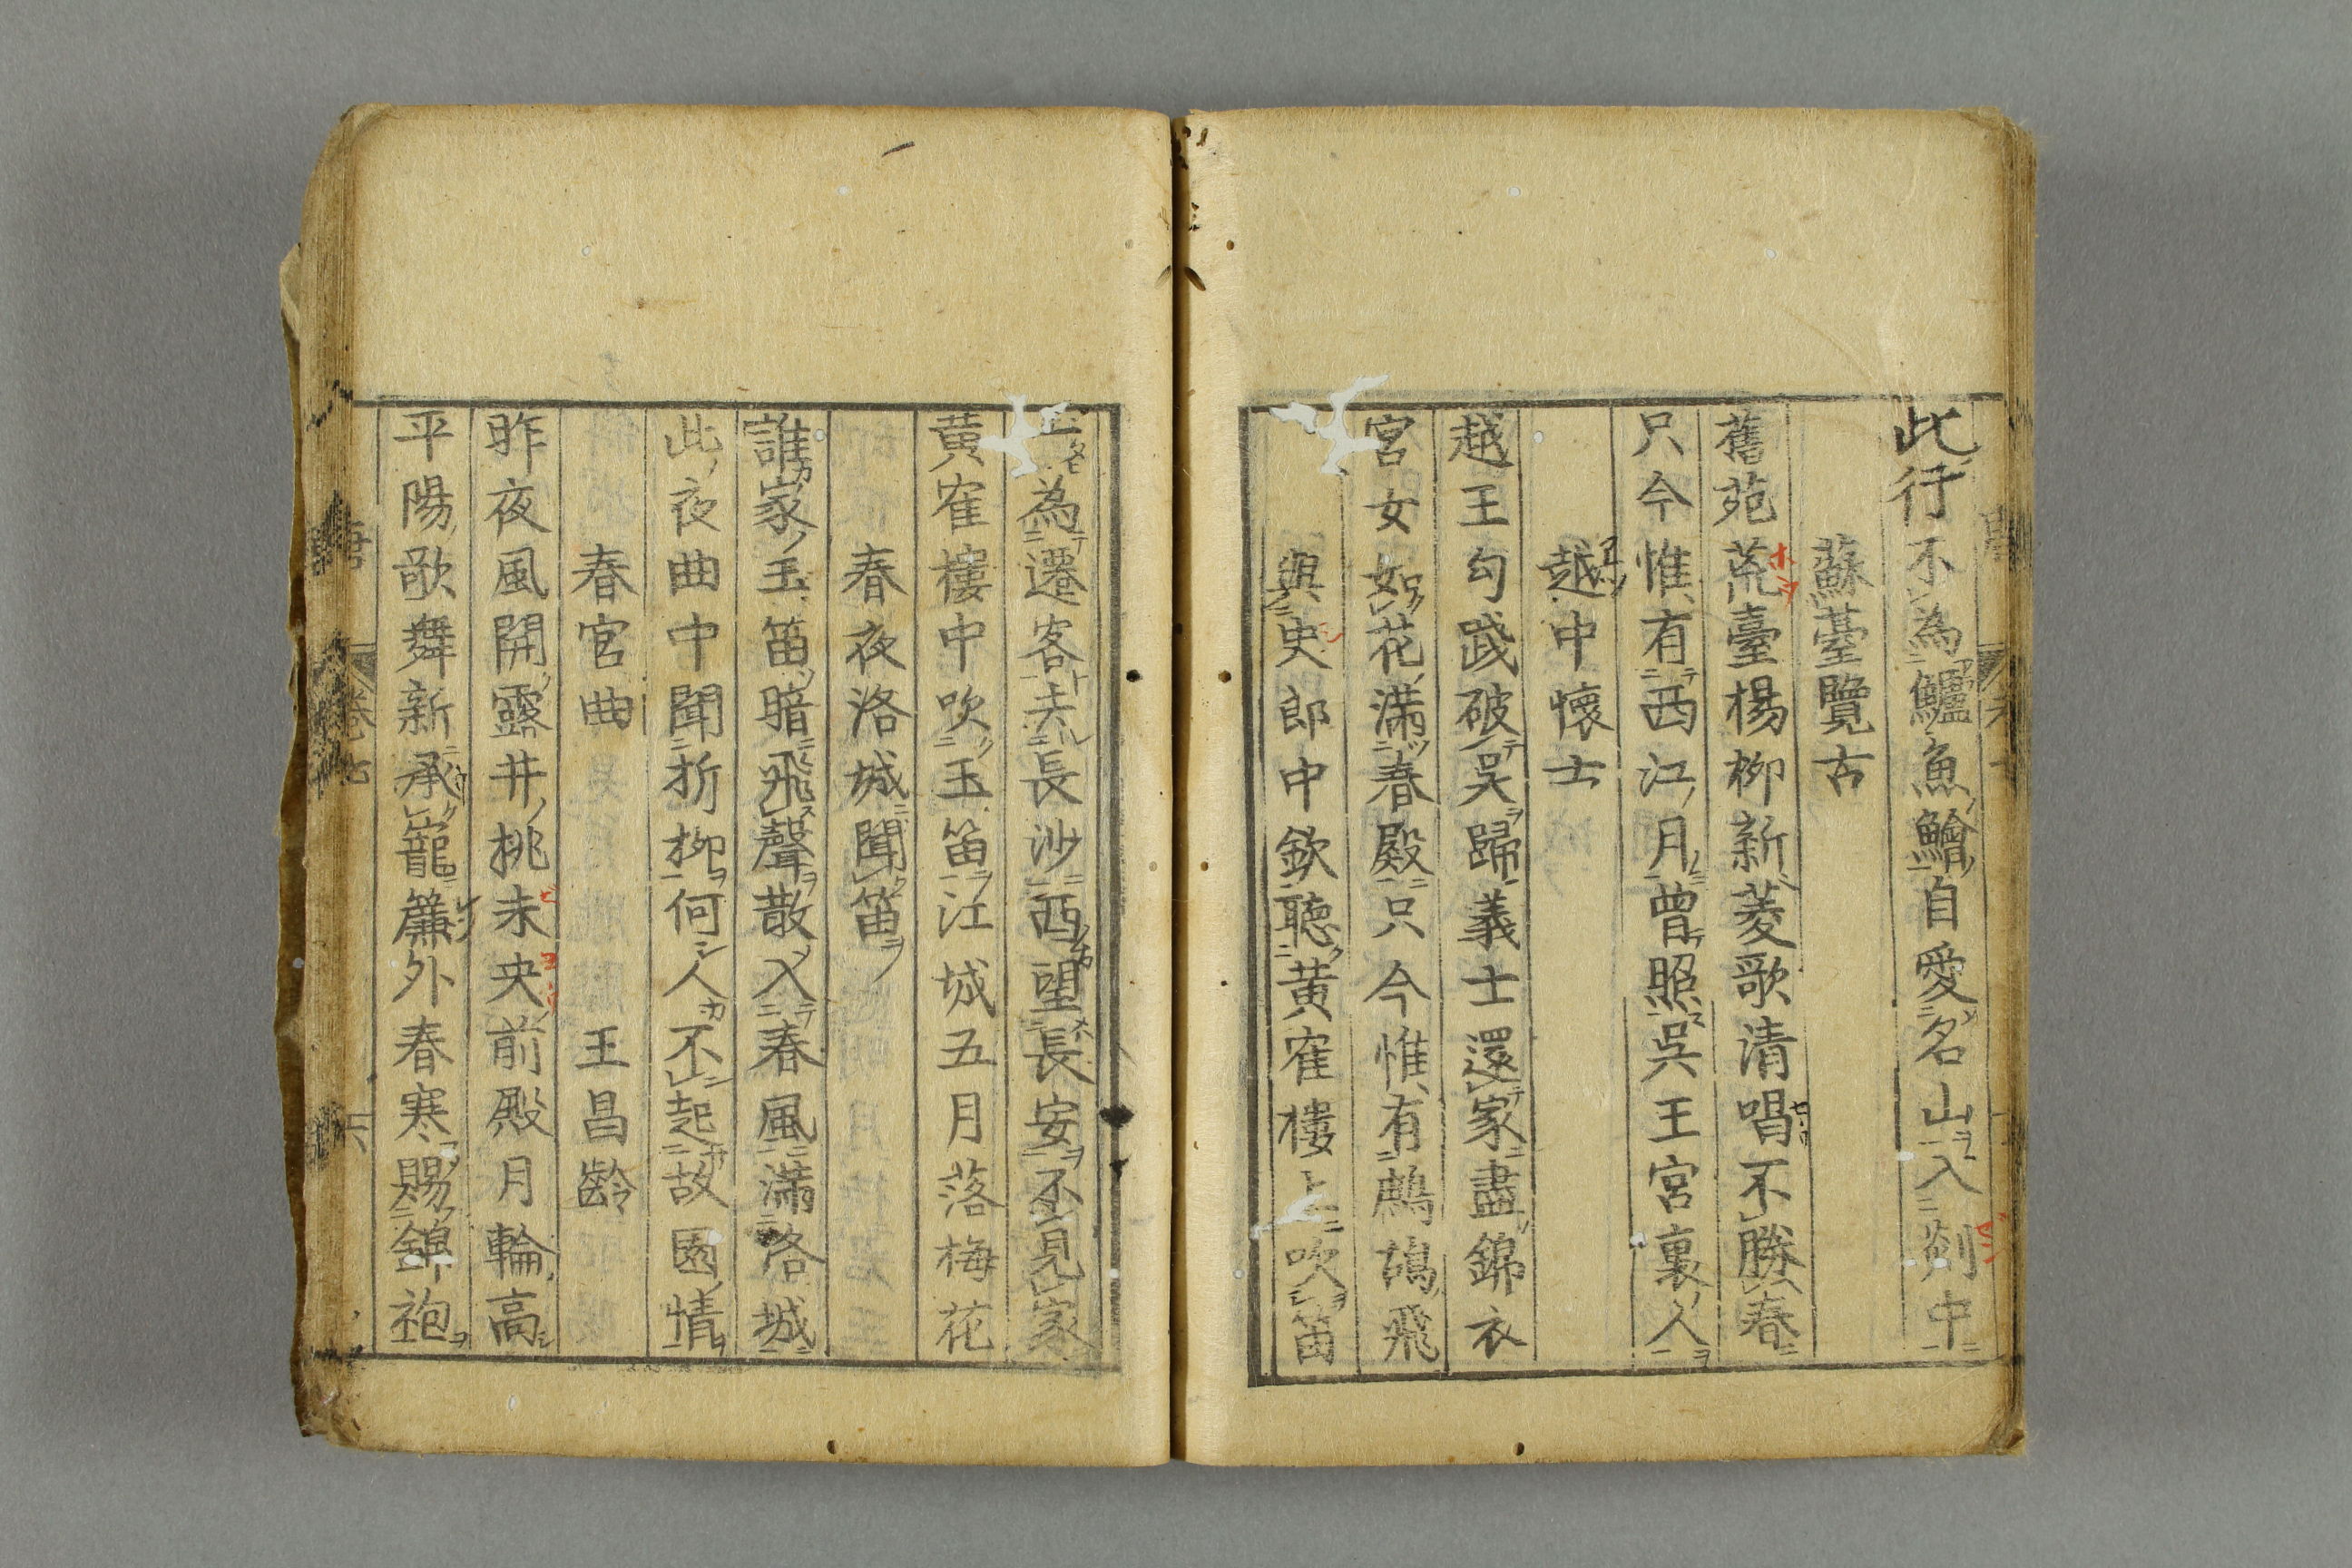 此行不為鱸魚鱠自愛名山入剡中
蘇臺覽古
舊苑荒臺楊柳新菱歌清唱不勝春
只今惟有西江月曾照吳王宮裏人
越中懷古
越王勾踐破吳歸義士還家盡錦衣
宮女如花滿春殿只今惟有鷓鴣飛
與史郎中欽聽黃寉樓上吹笛
為遷客去長沙西望長安不見家
黃寉樓中吹玉笛江城五月落梅花
春夜洛城聞笛
誰家玉笛暗飛聲散入春風滿洛城
此夜曲中聞折柳何人不起故園情
春宮曲 王昌齡
昨夜風開露井桃未央前殿月輪高
平陽歌舞新承寵簾外春寒賜錦袍
唐 卷七 六